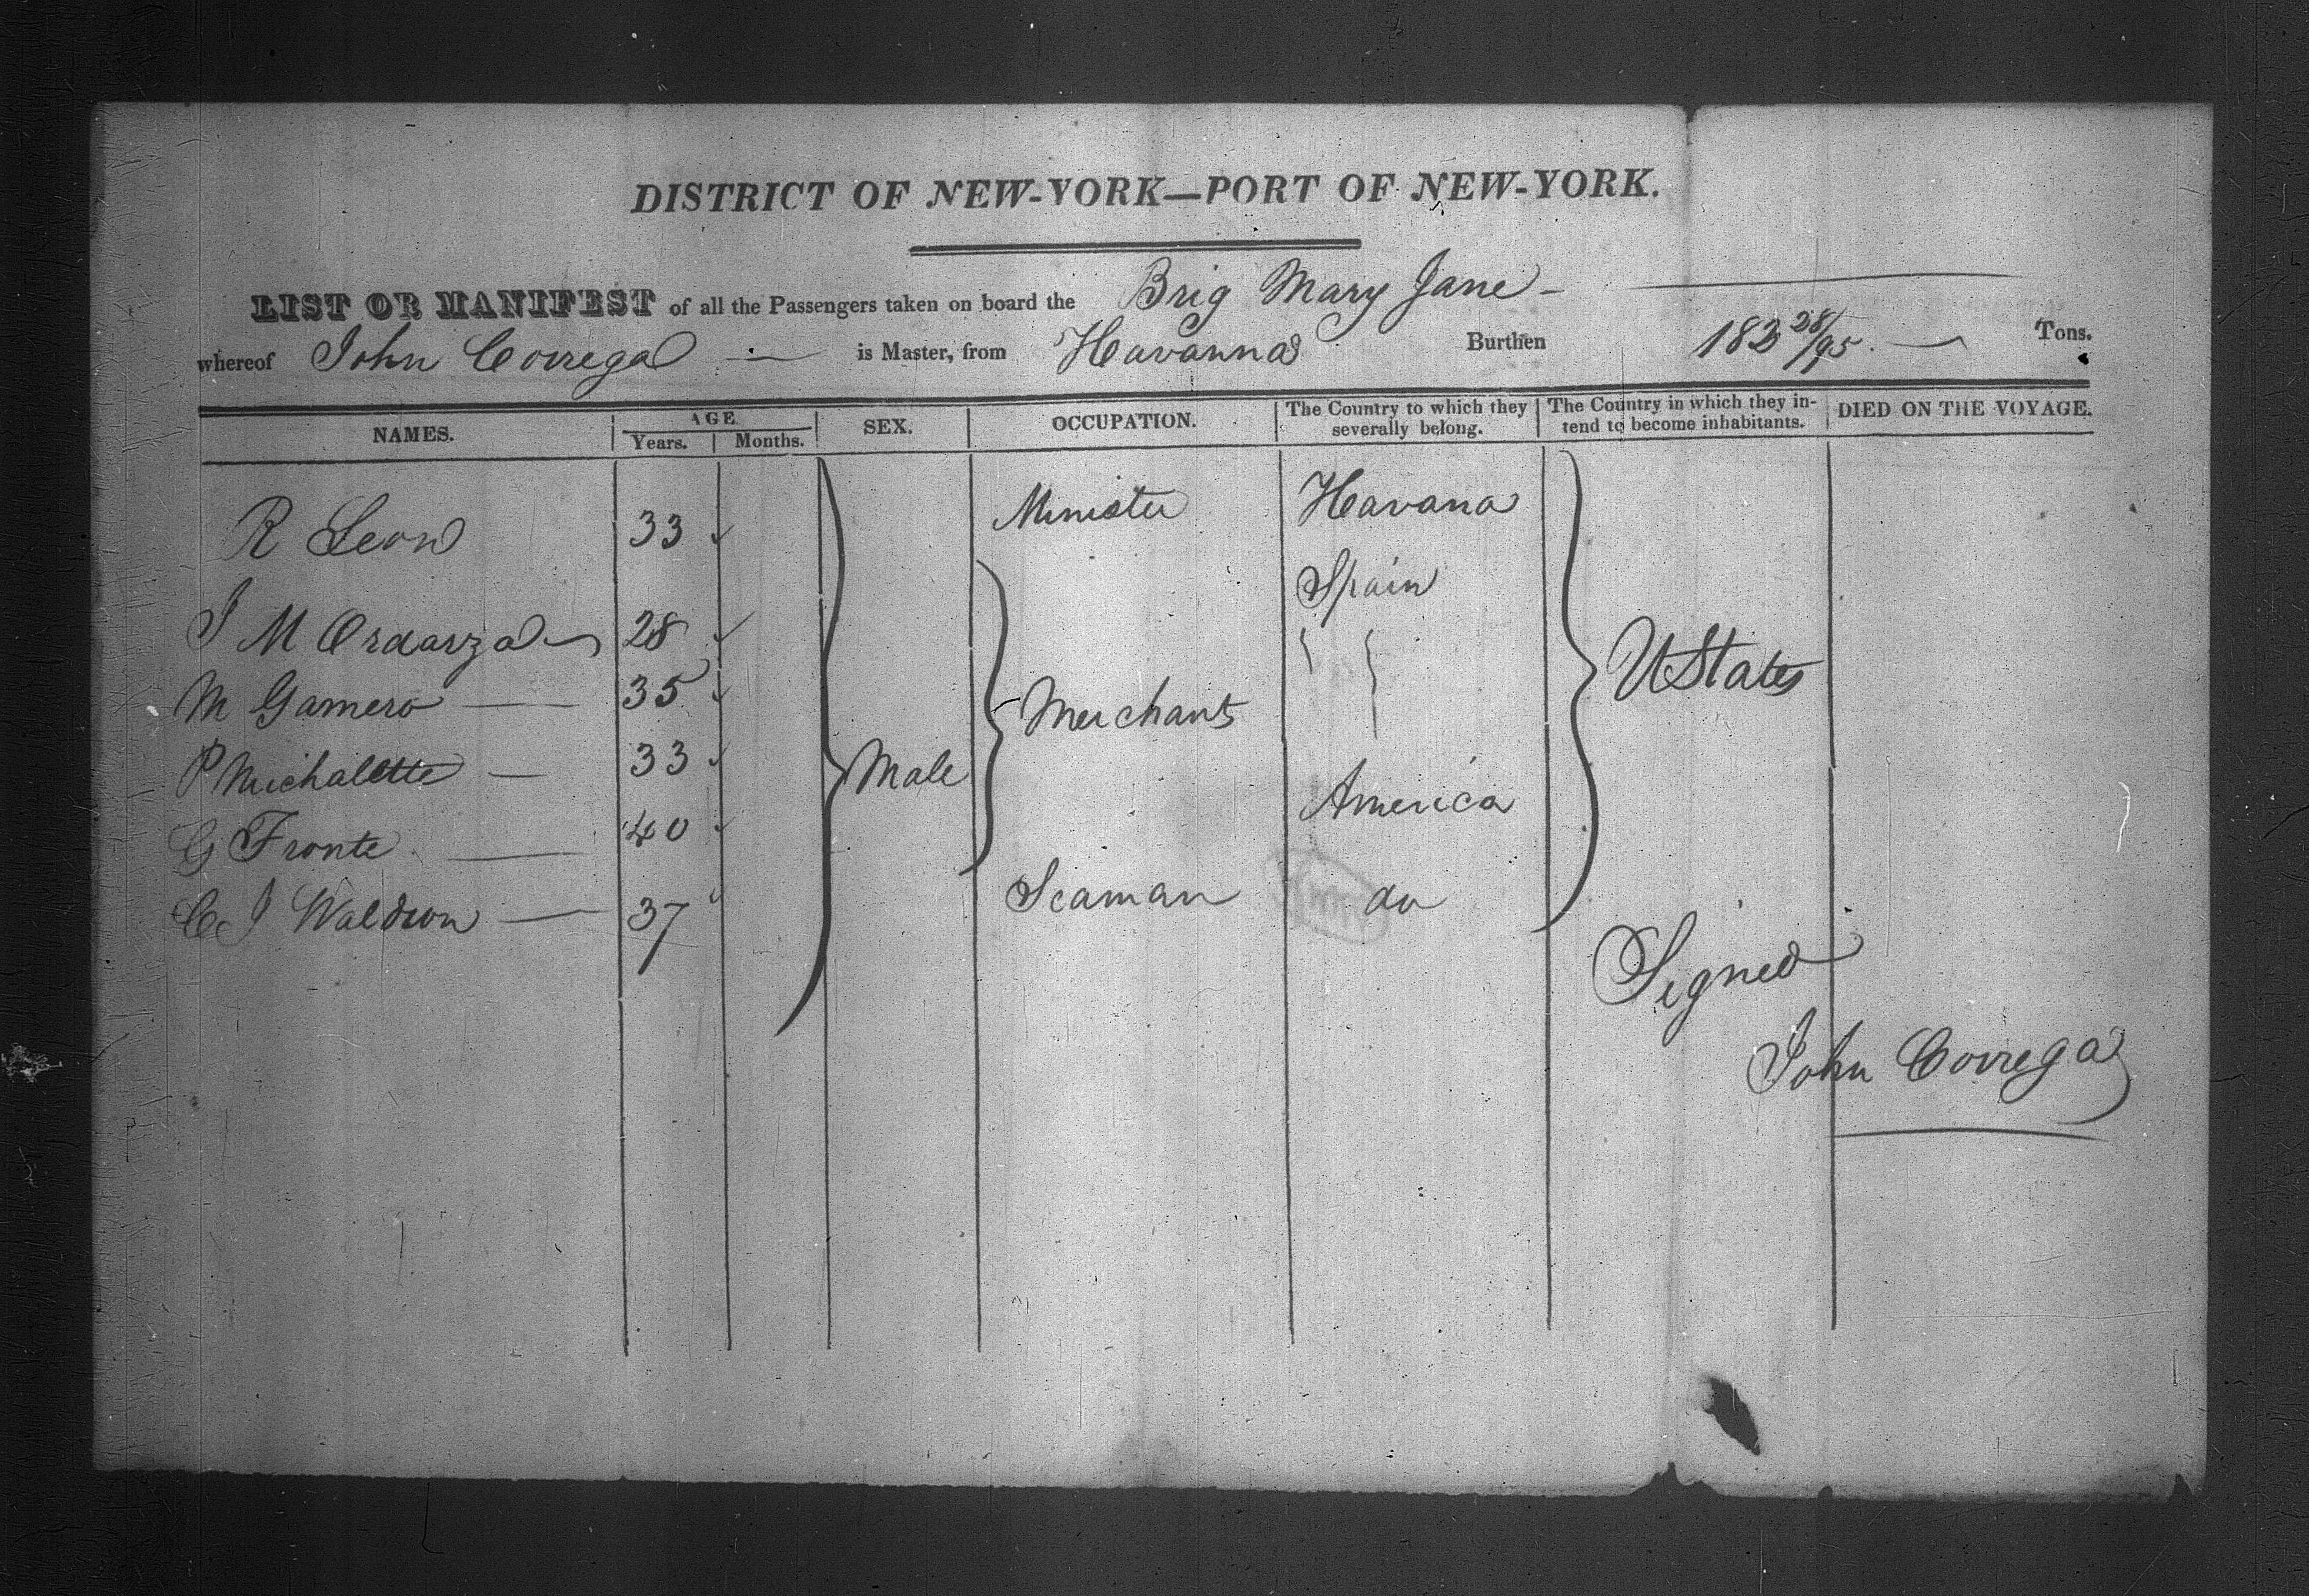 DISTRICT OF NEW-YORK—PORT OF NEW-YORK.
LIST OR MANIFEST of all the Passengers taken on board the Brig Mary Jane
whereof John Correga is Master, from Havanna Burthen 182 28/95 Tons.
NAMES. AGE SEX. OCCUPATION. The Country to which they severally belong. The Country in which they in-tend to become inhabitants. DIED ON THE VOYAGE.
Years. Months.
R Leon 33 Minister Havana
Spain
J M Ordarza 28 UStates
M Gamero 35 Merchants
P Michalette 33 Male America
G Fronte 40
C J Waldron 37 Seaman do
Signed
John Correga